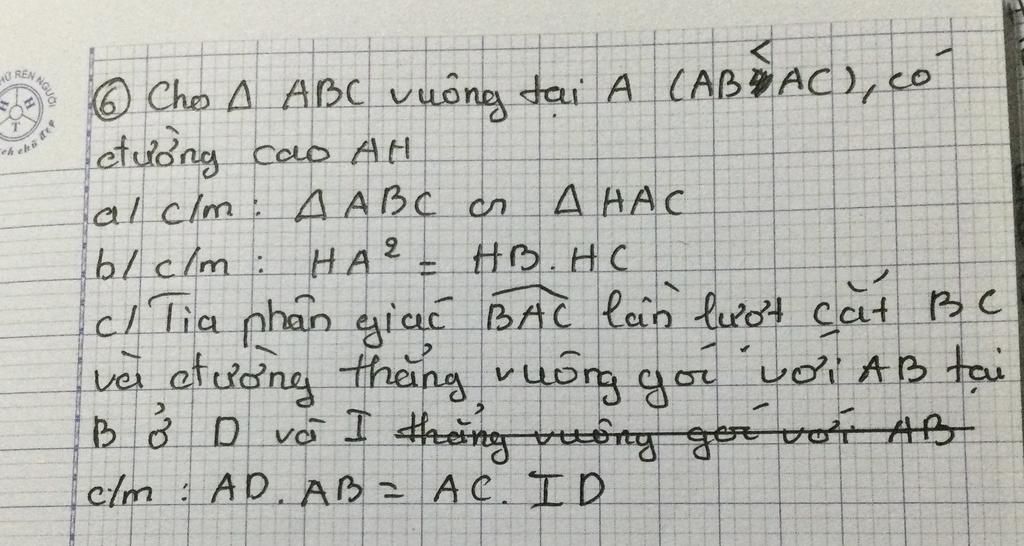 ⑥ Cho Δ ABC vuông tại A (AB < AC), có
đường cao AH
a/ c/m : Δ ABC ∽ Δ HAC
b/ c/m : HA² = HB.HC
c/ Tia phân giác BAC lần lượt cắt BC
và đường thẳng vuông góc với AB tại
B ở D và I thẳng vuông góc với AB
c/m : AD. AB = AC. ID
HỮ RÈN NGƯỜI
H H
T
ch chữ đẹp